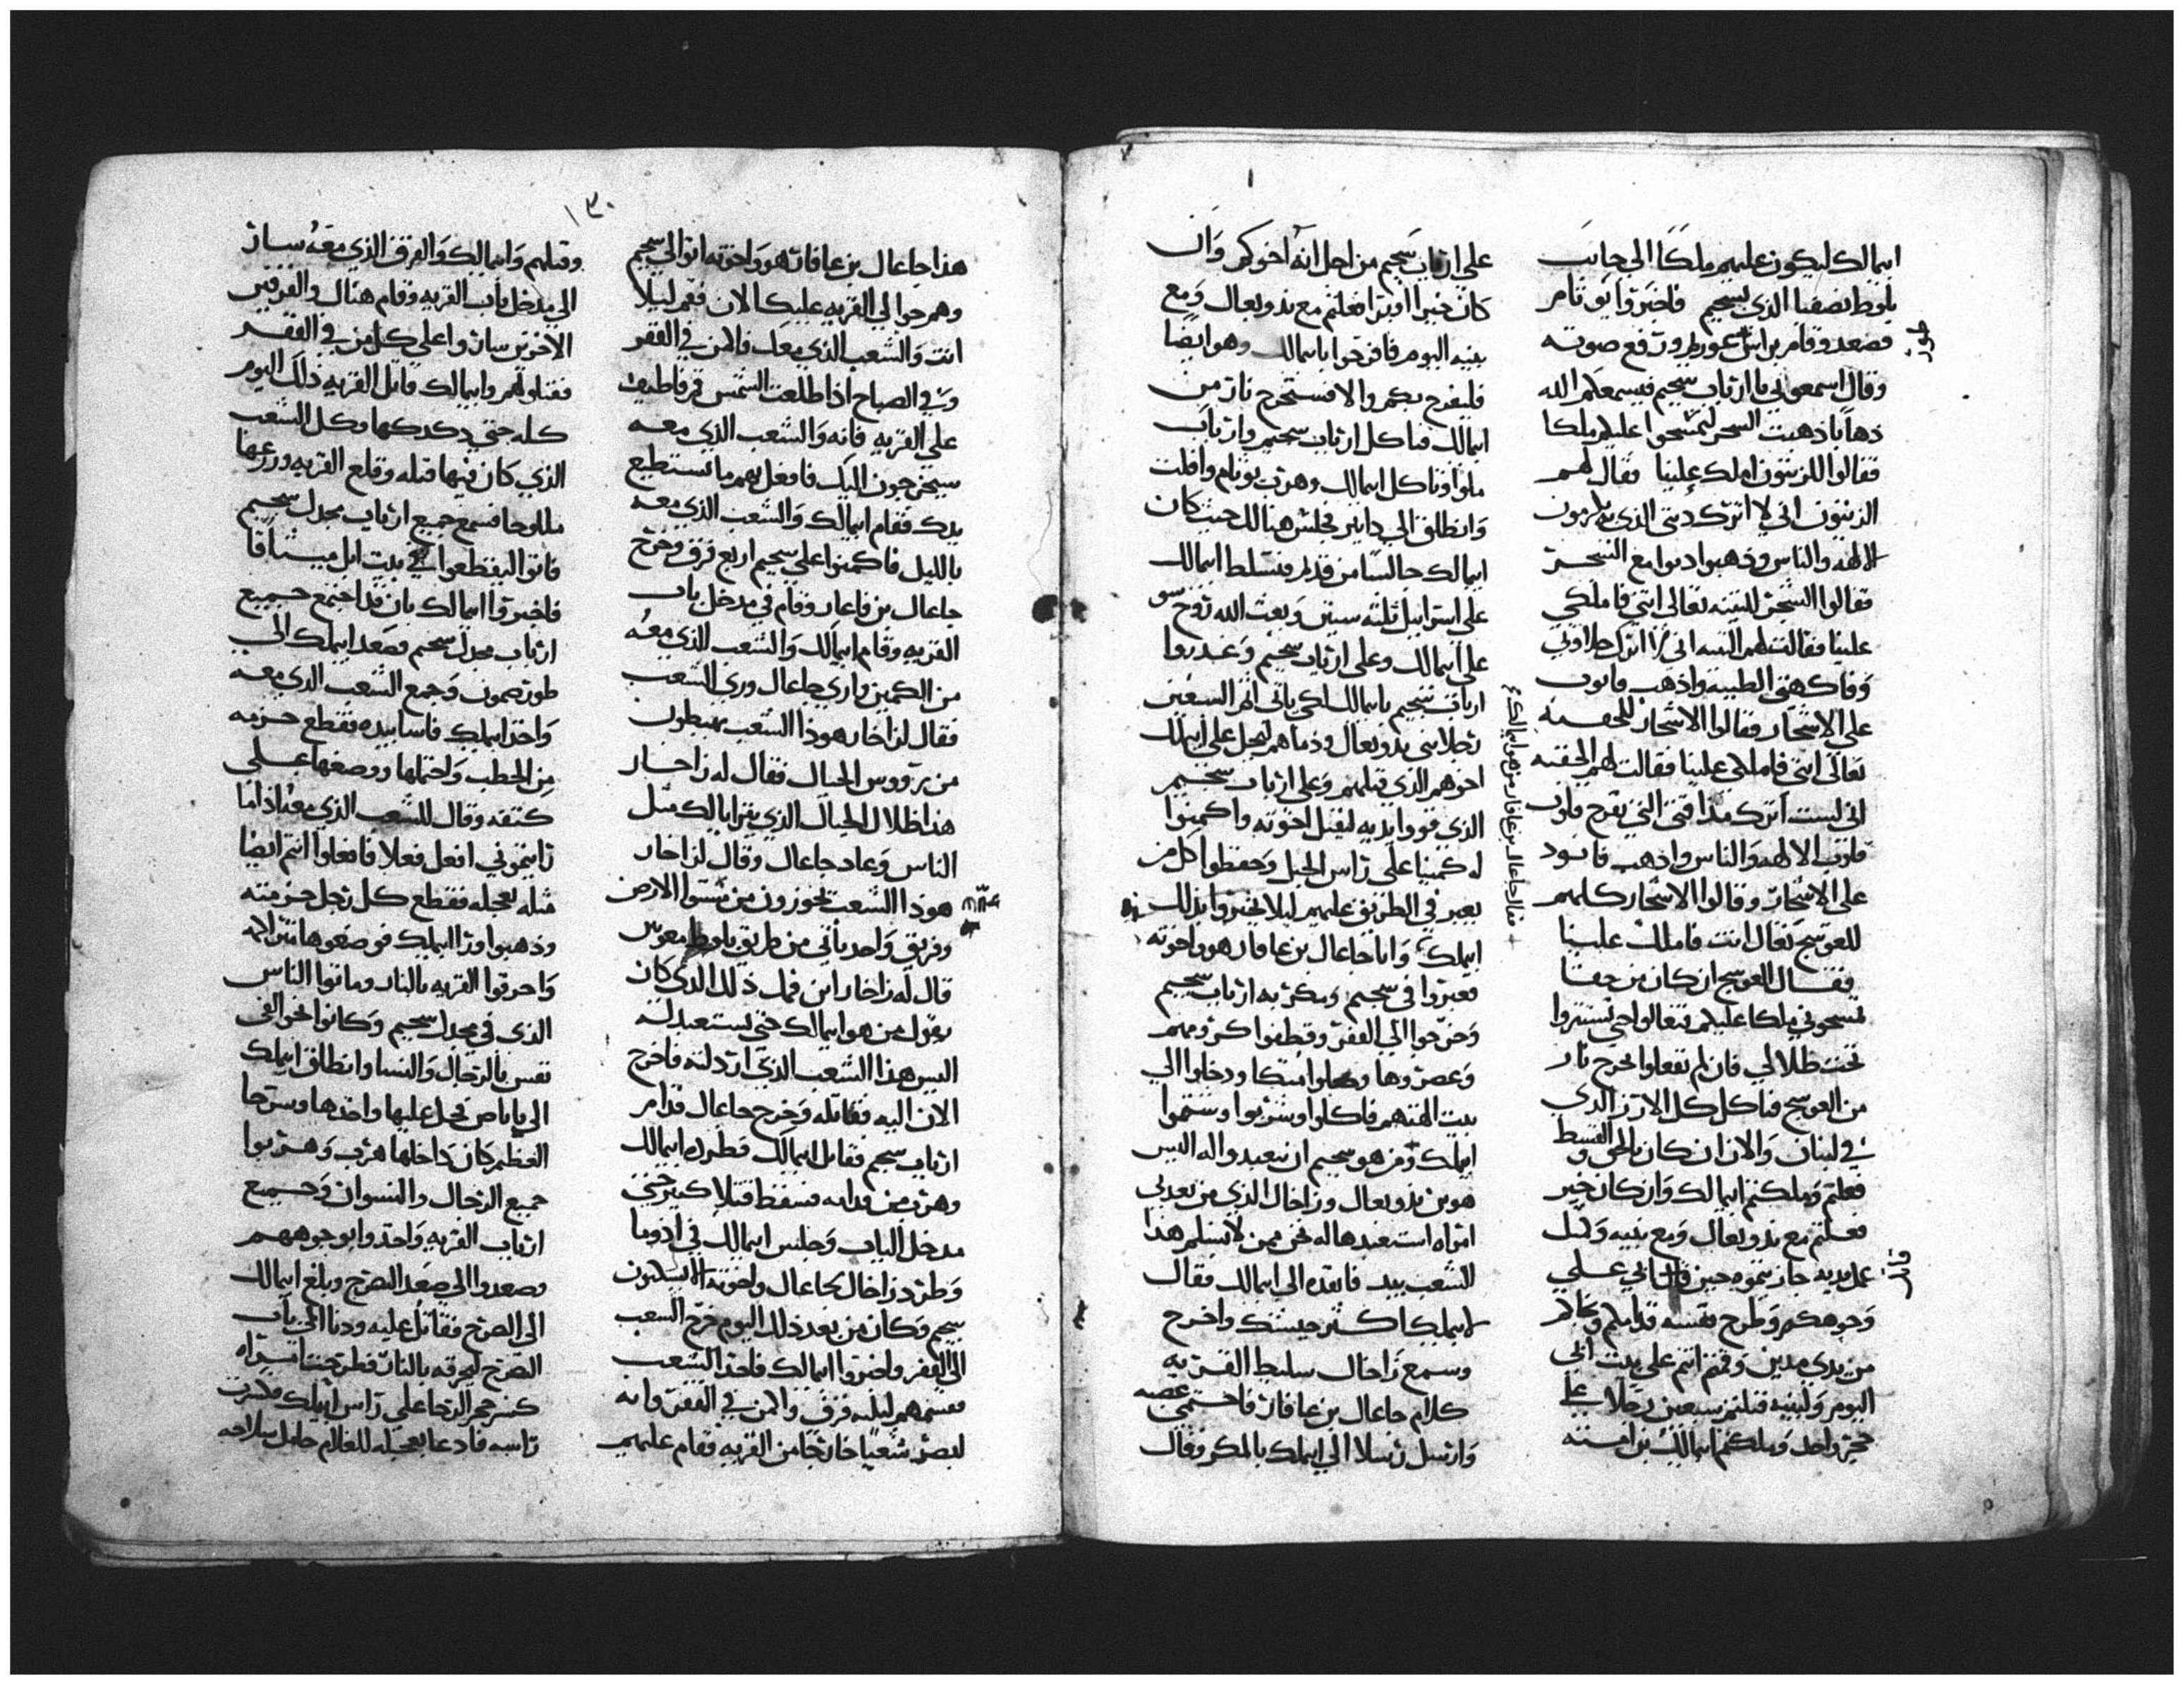 ابيمالك ليكون عليهم ملكًا الي جانب
بلوط نصفنا الذي بسجيم فاخبروا يوثام
فصعد وقام براس عوريم ورفع صوته
وقال اسمعوني يا ارباب سجيم فيسمعكم الله
ذهابا ذهبت الشجر لتمسحوا عليهم ملكا
فقالوا للزيتون املك علينا فقال لهم
الزيتون اني لا اترك دسمي الذي يكرمون
الالهه والناس وذهبوا
فقالوا الشجر للتينه تعالي انتي فاملكي
علينا فقالت لهم التينه اني لا اترك حلاوتي
وفاكهتي الطيبه واذهب
علي الاشجار فقالوا الاشجار للجفنه
تعالي انتي فاملكي علينا فقالت لهم الجفنه
اني لست اترك مذاقتي التي تفرح قلوب
قلوب الالهه والناس واذهب فاسود
علي الاشجار وقالوا الاشجار كلهم
للعوسج تعال انت فاملك علينا
فقال العوسج ان كان من حقنا
تمسحوني ملكا عليكم فتعالوا حتي تستتروا
تحت ظلالي فان لم تفعلوا تخرج نار
من العوسج فتاكل كل الارز الذي
في لبنان والان ان كان بالحق والقسط
فعلتم وملكتم ابيمالك وان كان خير
فعلتم مع يدوبعال ومع بنيه ومثل
عمل يديه جازيتموه حين قاتل ابي علي
وجوهكم وطرح نفسه قدامكم ونجاكم
من يدي مدين وقمتم انتم علي بيت ابي
اليوم ولبنيه قتلتم سبعين رجلا علي
حجر واحد وملكتم ابيمالك بن امته
علي ارباب سجيم من اجل انه اخوكم وان
كان خيرا افترا فعلتم مع يدوبعال ومع
بنيه اليوم فافرحوا بابيمالك وهو ايضًا
فليفرح بكم والا فستخرج نار من
ابيمالك فتاكل ارباب سجيم وارباب
ملوا وتاكل ابيمالك وهرب يوثام وافلت
وانطلق الي دابير فجلس هنالك حيث كان
ابيمالك جالسًا من قدام فتسلط ابيمالك
علي اسراييل ثلثه سنين وبعث الله روح سو
علي ابيمالك وعلي ارباب سجيم وغدروا
ارباب سجيم بابيمالك لكي ياتي اثم السبعين
رجلا بني يدوبعال ودماهم ليجعل علي ابيملك
اخوهم الذي قتلهم وعلي ارباب سجيم
الذي قووا يديه ليقتل اخوته واكمنوا
له كمينا علي راس الجبل وحفظوا كل من
يعبر في الطريق عليهم ليلا يخبروا بذلك
ابيملك وانا جاعال بن عافار هو واخوته
فعبروا في سجيم وسكر به ارباب سجيم
وخرجوا الي القفر وقطفوا كرومهم
وعصروها وعملوا متكا ودخلوا الي
بيت الهتهم فاكلوا وشربوا وشتموا
ابيملك ومن هو سجيم ان نتعبد واله اليس
هو بن يدوبعال وزاخال الذي من بعدي
امراه استعبدها له نحن ممن لا نسلم هذا
الشعب بيد فانقده الي ابيمالك فقال
لابيملك اكثر جيشك واخرج
وسمع زاخال سليط القريه
كلام جاعال بن عافار فاحتمي غضبه
وارسل رسلا الي ابيملك بالمكر وقال
١٣٠
هذا جاعال بن عافار هو واخوته اتوا الي سجيم
وهم حوالي القريه عليك الان فقم ليلا
انت والشعب الذي معك فاكمن في القفر
وفي الصباح اذا طلعت الشمس قم فاطبق
علي القريه فانه والشعب الذي معه
سيخرجون اليك فافعل بهم ما تستطيع
يدك فقام ابيمالك والشعب الذي معه
بالليل فاكمنوا علي سجيم اربع فرق وخرج
جاعال بن فاعار وقام في مدخل باب
القريه وقام ابيمالك والشعب الذي معه
من الكمين وراي جاعال وري الشعب
فقال لزاخار هوذا الشعب يهبطون
من رووس الجبال فقال له زاخار
هذا ظلال الجبال الذي يترايا لك مثل
الناس وعاد جاعال وقال لزاخار
هوذا الشعب يجوزون من مستوا الارض
وفريق واحد ياتي من طريق بلوط معونين
قال له زاخار اين فمك ذلك الذي كان
يقول من هو ابيمالك حتي يستعبد لنه
اليس هذا الشعب الذي ارذلته فاخرج
الان اليه فقاتله وخرج جاعال قدام
ارباب سجيم فقاتل ابيمالك فطرده ابيمالك
وهرب من قدامه فسقط قتلا كثير حتي
مدخل الباب وجلس ابيمالك في ادوما
وطرد زاخال جاعال واخوته الا يسكنون
سجيم وكان من بعد ذلك اليوم خرج الشعب
الي القفر واخبروا ابيمالك فاخذ الشعب
فقسمهم لثلثه فرق واكمن في القفر وانه
لبصر شعبًا خارجًا من القريه فقام عليهم
وقتلهم وابيمالك والفرق الذي معه ساروا
الي مدخل باب القريه وقام هناك والفرقتين
الاخرتين ساروا علي كل من في القفر
فقتلوهم وابيمالك قاتل القريه ذلك اليوم
كله حتي دكدكها وكل الشعب
الذي كان فيها قتله وقلع القريه وزرعها
ملوحا فسمع جميع ارباب مجدل سجيم
فاتوا ليقطعوا في بيت ايل ميثاقا
فاخبروا ابيمالك بان قد اجتمع جميع
ارباب مجدل سجيم فصعد ابيملك الي
طور صمون وجمع الشعب الذي معه
واخذ ابيملك فاسا بيده فقطع حزمه
من الحطب واحتملها ووضعها علي
كتفه وقال للشعب الذي معه اذا ما
رايتموني افعل فعلا فافعلوا انتم ايضا
مثله بعجله فقطع كل رجل حزمته
وذهبوا ورا ابيملك فوضعوها
واحرقوا القريه بالنار وماتوا الناس
الذي في مجدل سجيم وكانوا نحو الف
نفس بالرجال والنسا وانطلق ابيملك
الي ياباص فحل عليها واخذها وسرحا
العظم كان داخلها هرب وهربوا
جميع الرجال والنسوان وجميع
ارباب القريه واخذوا بوجوههم
وصعدوا الي صعد الصرح وبلغ ابيمالك
الي الصرح فقاتل عليه ودنا الي باب
الصرح ليحرقه بالنار فطرحت امراه
كسر حجر الرحا علي راس ابيملك فكسرت
راسه فادعا بعجله للغلام حامل سلاحه